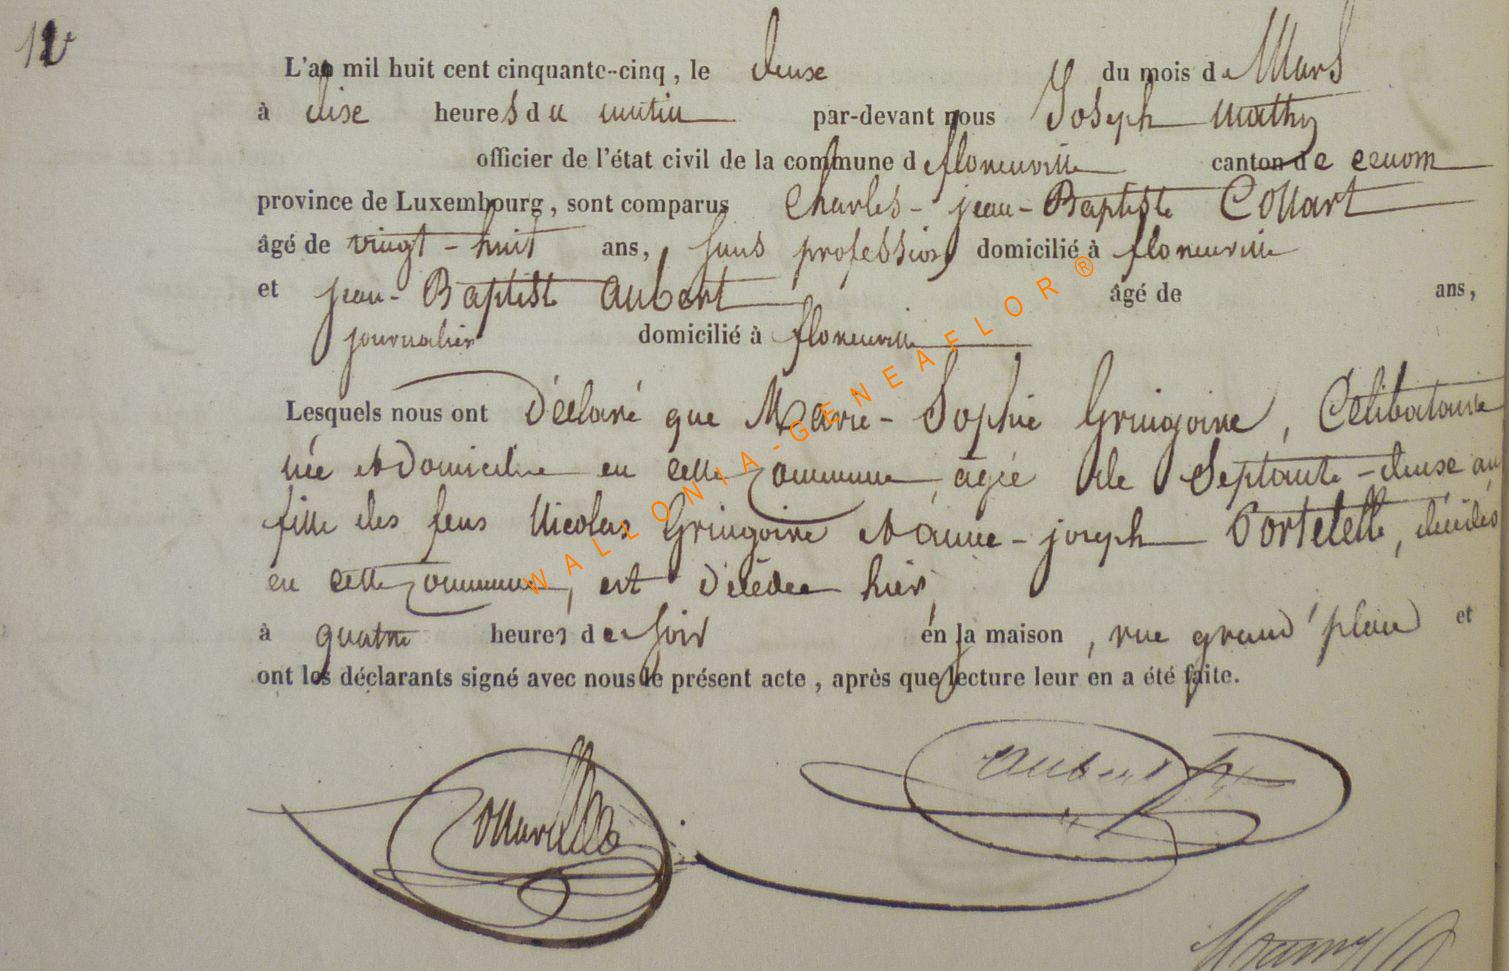 12
L'an mil huit cent cinquante-cinq, le deuse du mois de Mars
à dise heures du matin par-devant nous Joseph Mathy
officier de l'état civil de la commune de florenville canton de
province de Luxembourg, sont comparus Charles-jean-Baptiste Collart
âgé de vingt-huit ans, sans profession domicilié à florenville
et jean-Baptiste Aubert âgé de ans,
journalier domicilié à florenville
Lesquels nous ont déclaré que Marie-Sophie Gringoire, Célibataire
née et domiciliée en cette commune, agée de Septante-deuse ans
fille des feus Nicolas Gringoire et anne-joseph Portelette, décédés
en cette commune, est décédée hier,
à quatre heures de soir en la maison, rue grand'place et
ont les déclarants signé avec nous le présent acte, après que lecture leur en a été faite.
Collart Aubert
WALLONIA-GENEAFLOR®